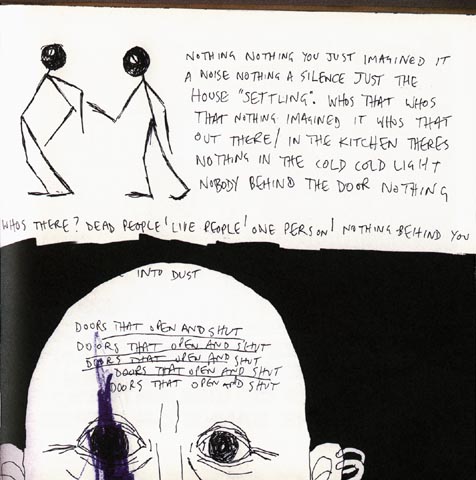 NOTHING NOTHING YOU JUST IMAGINED IT
A NOISE NOTHING A SILENCE JUST THE
HOUSE "SETTLING". WHOS THAT WHOS
THAT NOTHING IMAGINED IT WHOS THAT
OUT THERE/ IN THE KITCHEN THERES
NOTHING IN THE COLD COLD LIGHT
NOBODY BEHIND THE DOOR NOTHING
WHOS THERE? DEAD PEOPLE! LIVE PEOPLE! ONE PERSON! NOTHING BEHIND YOU
INTO DUST
DOORS THAT OPEN AND SHUT
DOORS THAT OPEN AND SHUT
DOORS THAT OPEN AND SHUT
DOORS THAT OPEN AND SHUT
DOORS THAT OPEN AND SHUT